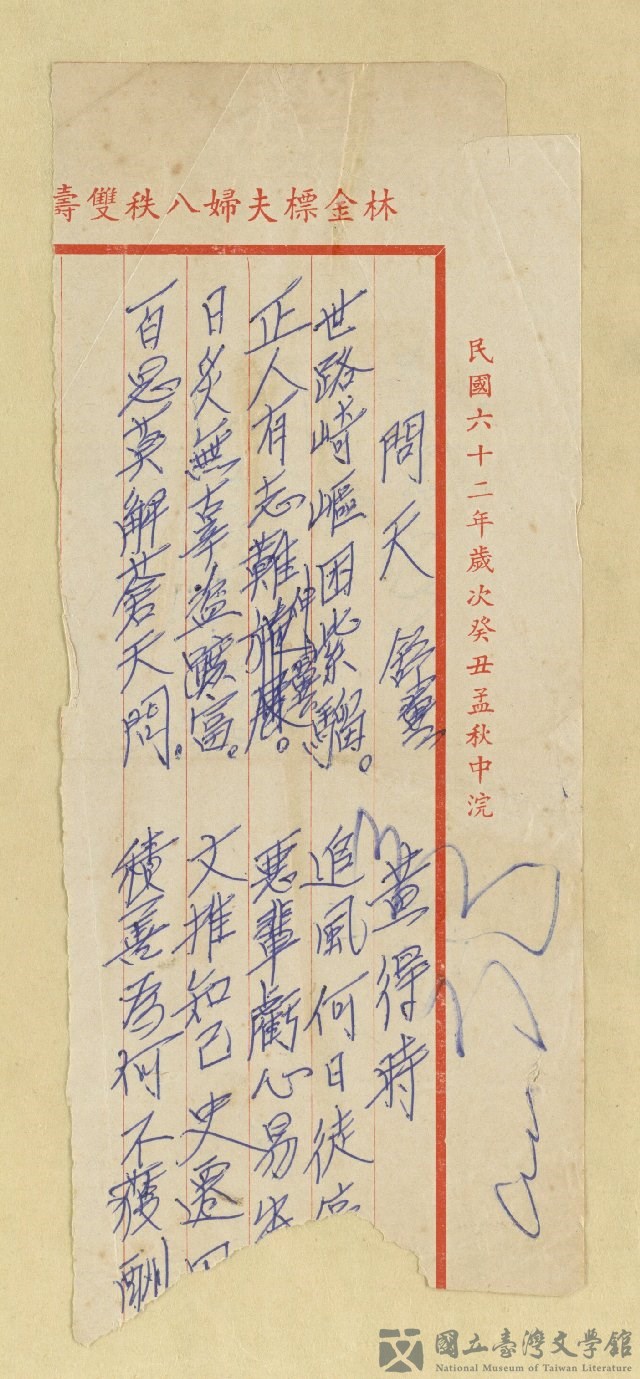 林金標夫婦八秩雙壽
民國六十二年歲次癸丑孟秋中浣
問天 黃得時
世路崎嶇困紫騮。 追風何日徒
正人有志難施展。 惡輩虧心易
伸
日炙無辜盜富。 文推知己史遷
百思莫解蒼天問。 積善為何不獲酬
國立臺灣文學館
National Museum of Taiwan Literature